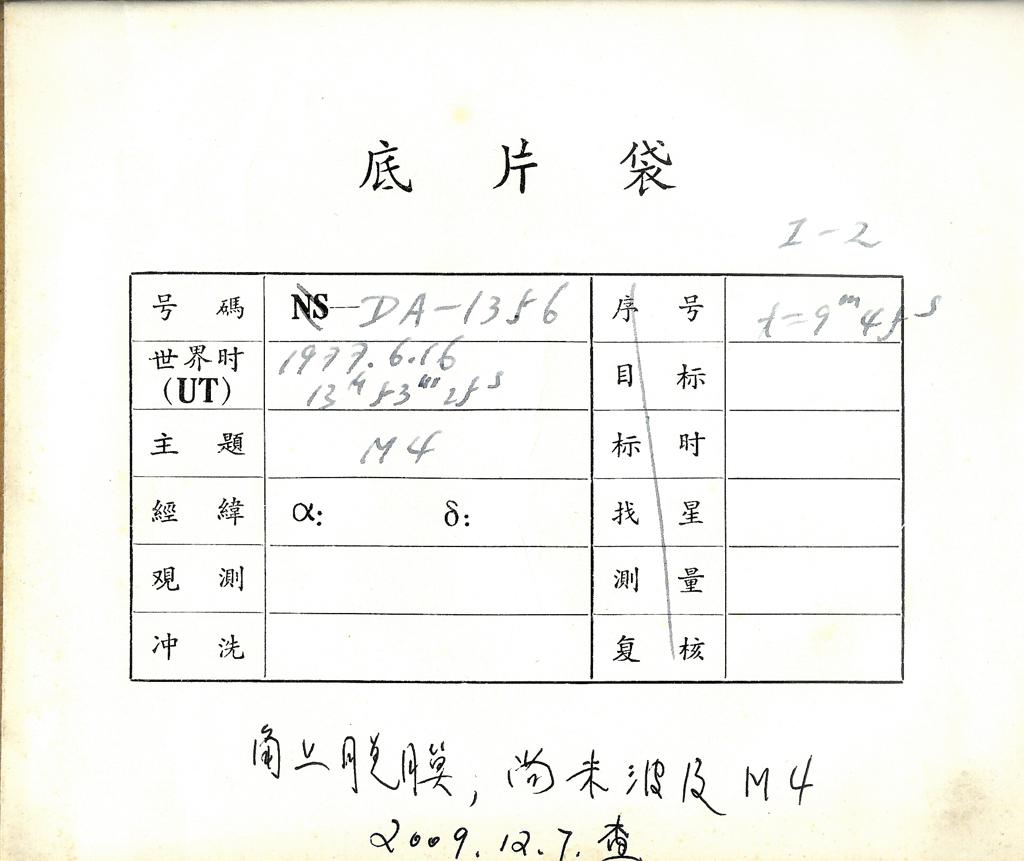 底片袋
I-2
号碼 NS—DA-1356 序号 t=9ᵐ45ˢ
世界时(UT) 1977.6.16 13ʰ53ᵐ25ˢ 目标
主題 M4 标时
經緯 α: δ: 找星
观測 測量
冲洗 复核
角上脱膜，尚未波及M4
2009.12.7.查